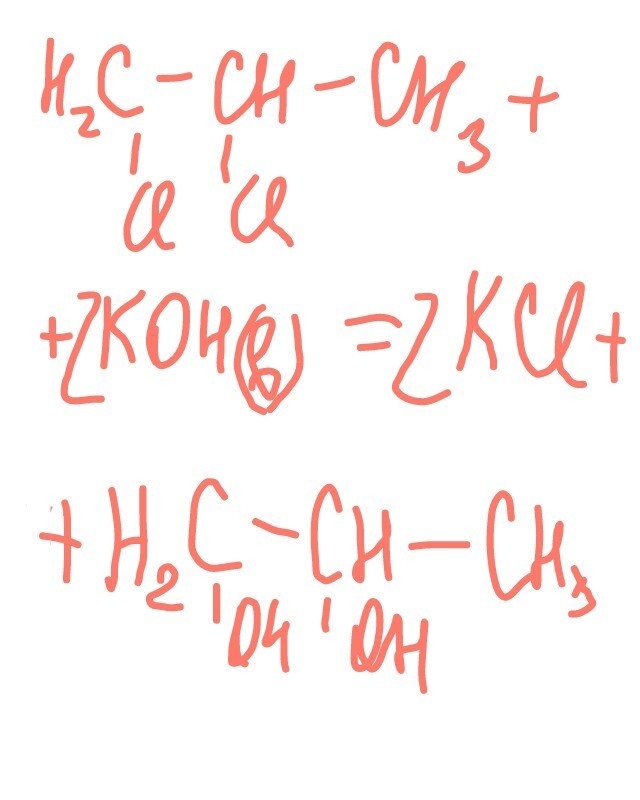 H₂C – CH – CH₃ +
Cl Cl
+ 2KOH(в) = 2KCl +
+ H₂C – CH – CH₃
OH OH